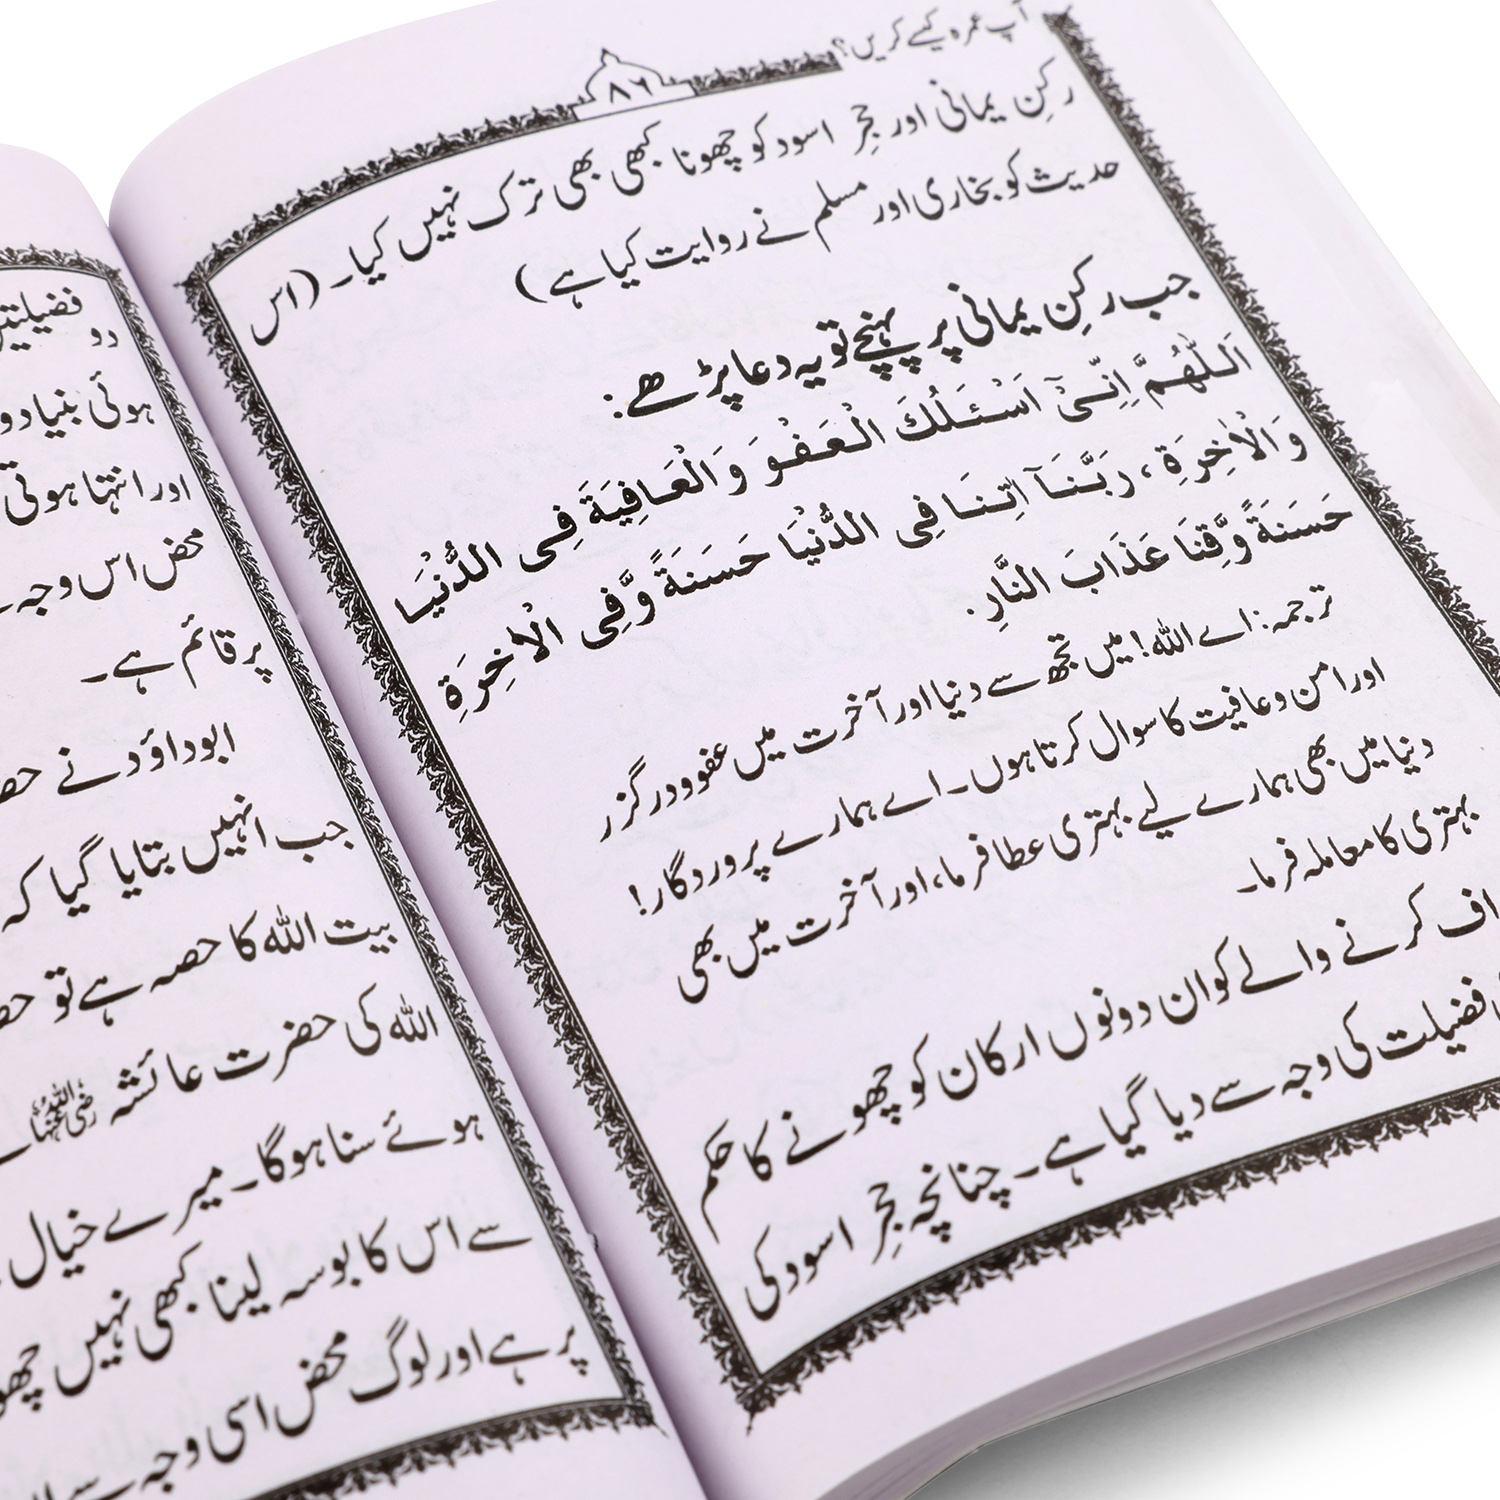 آپ عمرہ کیسے کریں؟
۸۶
رکنِ یمانی اور حجرِ اسود کو چھونا کبھی بھی ترک نہیں کیا۔ (اس
حدیث کو بخاری اور مسلم نے روایت کیا ہے)
جب رکنِ یمانی پر پہنچے تو یہ دعا پڑھے:
اَللّٰهُمَّ اِنِّىْٓ اَسْئَلُكَ الْعَفْوَ وَالْعَافِيَةَ فِى الدُّنْيَا
وَالْاٰخِرَةِ، رَبَّنَآ اٰتِنَا فِى الدُّنْيَا حَسَنَةً وَّفِى الْاٰخِرَةِ
حَسَنَةً وَّقِنَا عَذَابَ النَّارِ.
ترجمہ: اے اللہ! میں تجھ سے دنیا اور آخرت میں عفوودرگزر
اور امن وعافیت کا سوال کرتا ہوں۔ اے ہمارے پروردگار!
دنیا میں بھی ہمارے لیے بہتری عطا فرما، اور آخرت میں بھی
بہتری کا معاملہ فرما۔
کرنے والے کو ان دونوں ارکان کو چھونے کا حکم
فضیلت کی وجہ سے دیا گیا ہے۔ چنانچہ حجرِ اسود کی
دو
ہوئی بنیاد
اور انتہا ہوتی
محض اس وجہ
پر قائم ہے۔
ابوداؤد نے
جب انہیں بتایا گیا کہ
بیت اللہ کا حصہ ہے تو
اللہ کی حضرت عائشہ رضی اللہ عنہا
ہوئے سنا ہوگا۔ میرے خیال
سے اس کا بوسہ لینا کبھی نہیں
پر ہے اور لوگ محض اسی وجہ سے